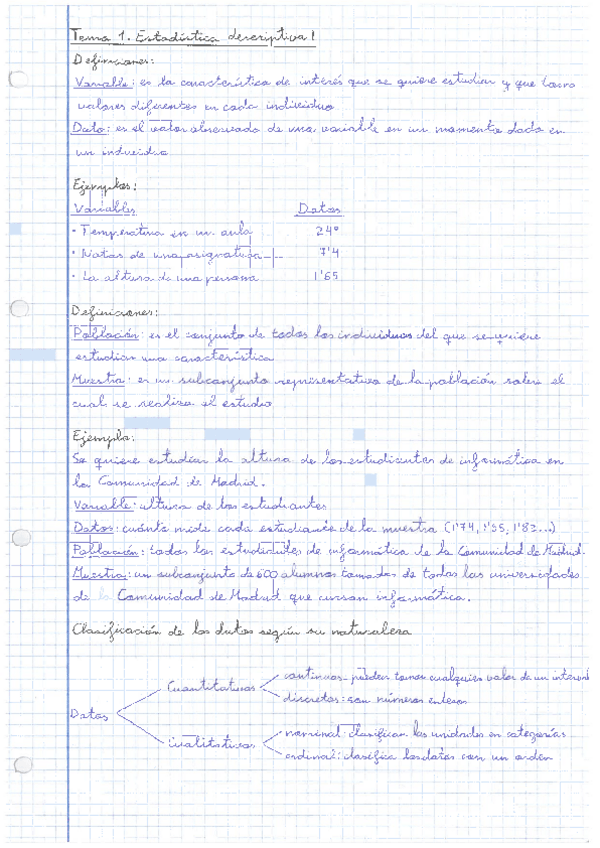 Tema 1. Estadística descriptiva I
Definiciones:
Variable: es la característica de interés que se quiere estudiar y que toma
valores diferentes en cada individuo
Dato: es el valor observado de una variable en un momento dado en
un individuo
Ejemplos:
Variables Datos
· Temperatura en un aula 24º
· Notas de una asignatura 7'4
· La altura de una persona 1'65
Definiciones:
Población: es el conjunto de todos los individuos del que se quiere
estudiar una característica
Muestra: es un subconjunto representativo de la población sobre el
cual se realiza el estudio
Ejemplo:
Se quiere estudiar la altura de los estudiantes de informática en
la Comunidad de Madrid.
Variable: altura de los estudiantes
Datos: cuánto mide cada estudiante de la muestra (1'74, 1'55, 1'83...)
Población: todos los estudiantes de informática de la Comunidad de Madrid.
Muestra: un subconjunto de 600 alumnos tomados de todas las universidades
de la Comunidad de Madrid que cursan informática.
Clasificación de los datos según su naturaleza
Datos
Cuantitativos
continuos: pueden tomar cualquier valor de un interval
discretos: son números enteros
Cualitativos
nominal: clasifican las unidades en categorías
ordinal: clasifica los datos con un orden